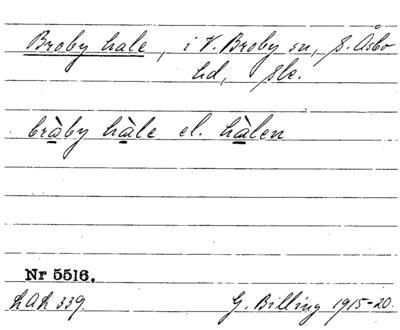 Broby hale, i V. Broby sn, S. Åsbo
hd, Sk.
bràby hàle el. hàlen
Nr 5516.
LAL 339. G. Billing 1915-20.